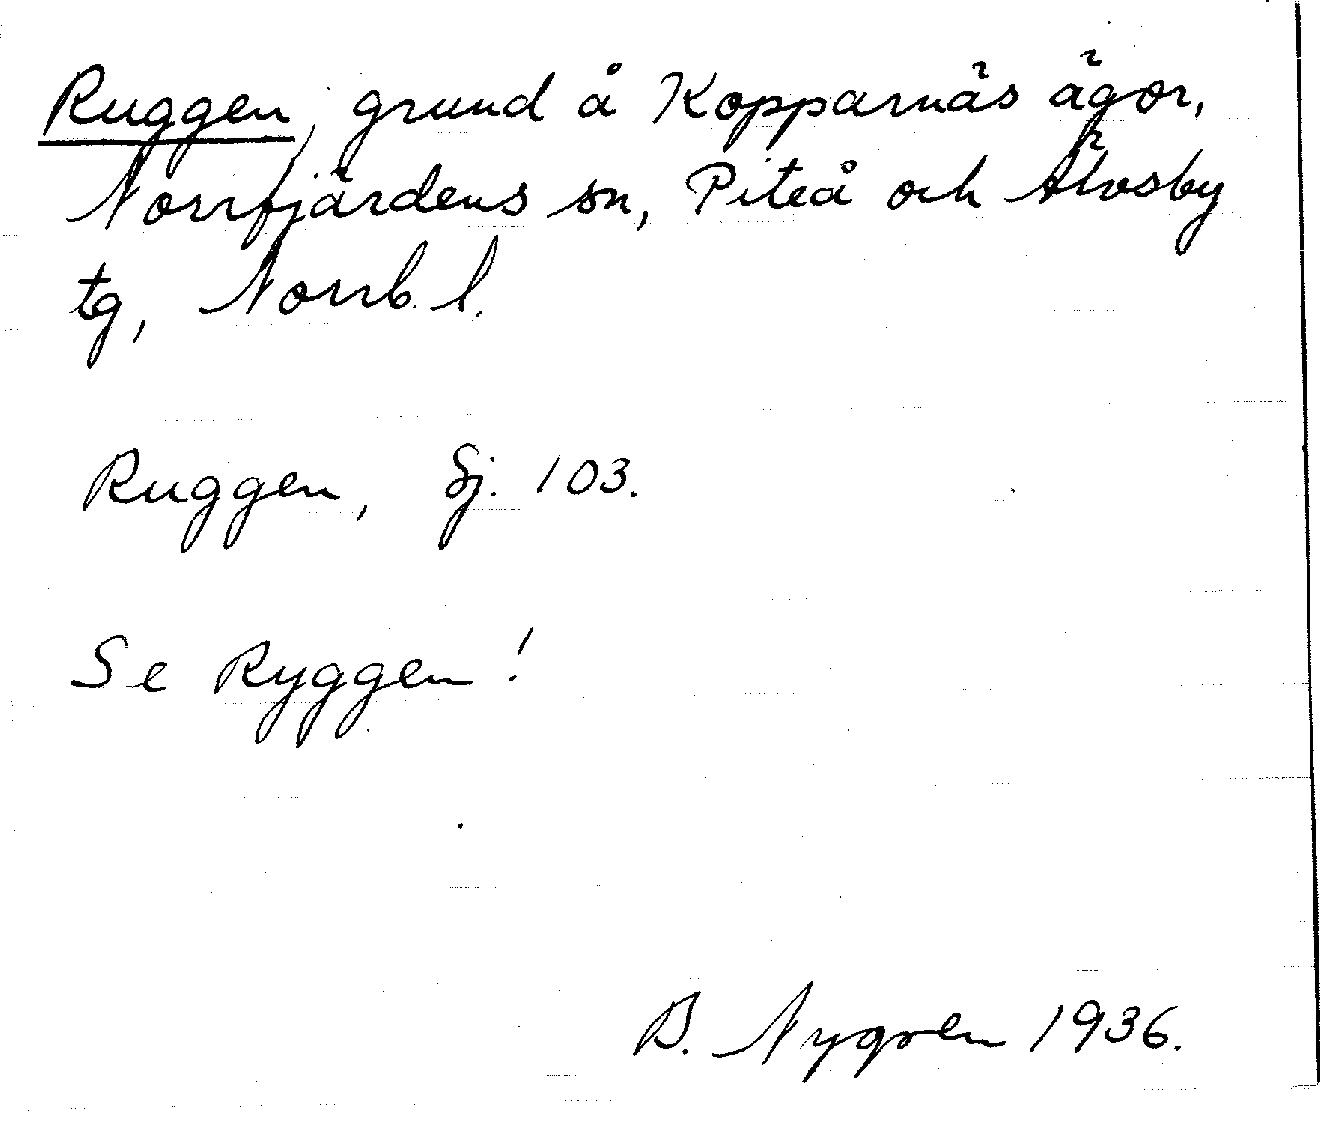 Ruggen, grund å Kopparnäs ägor,
Norrfjärdens sn, Piteå och Älvsby
tg, Norrb. l.
Ruggen, Sj. 103.
Se Ryggen!
B. Nygren 1936.